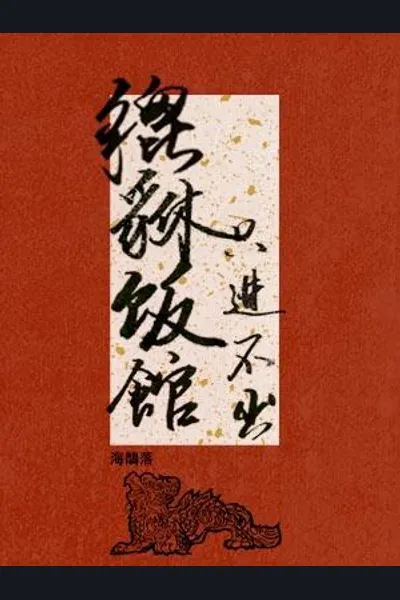 貔貅饭館
只進不出
海鶻落